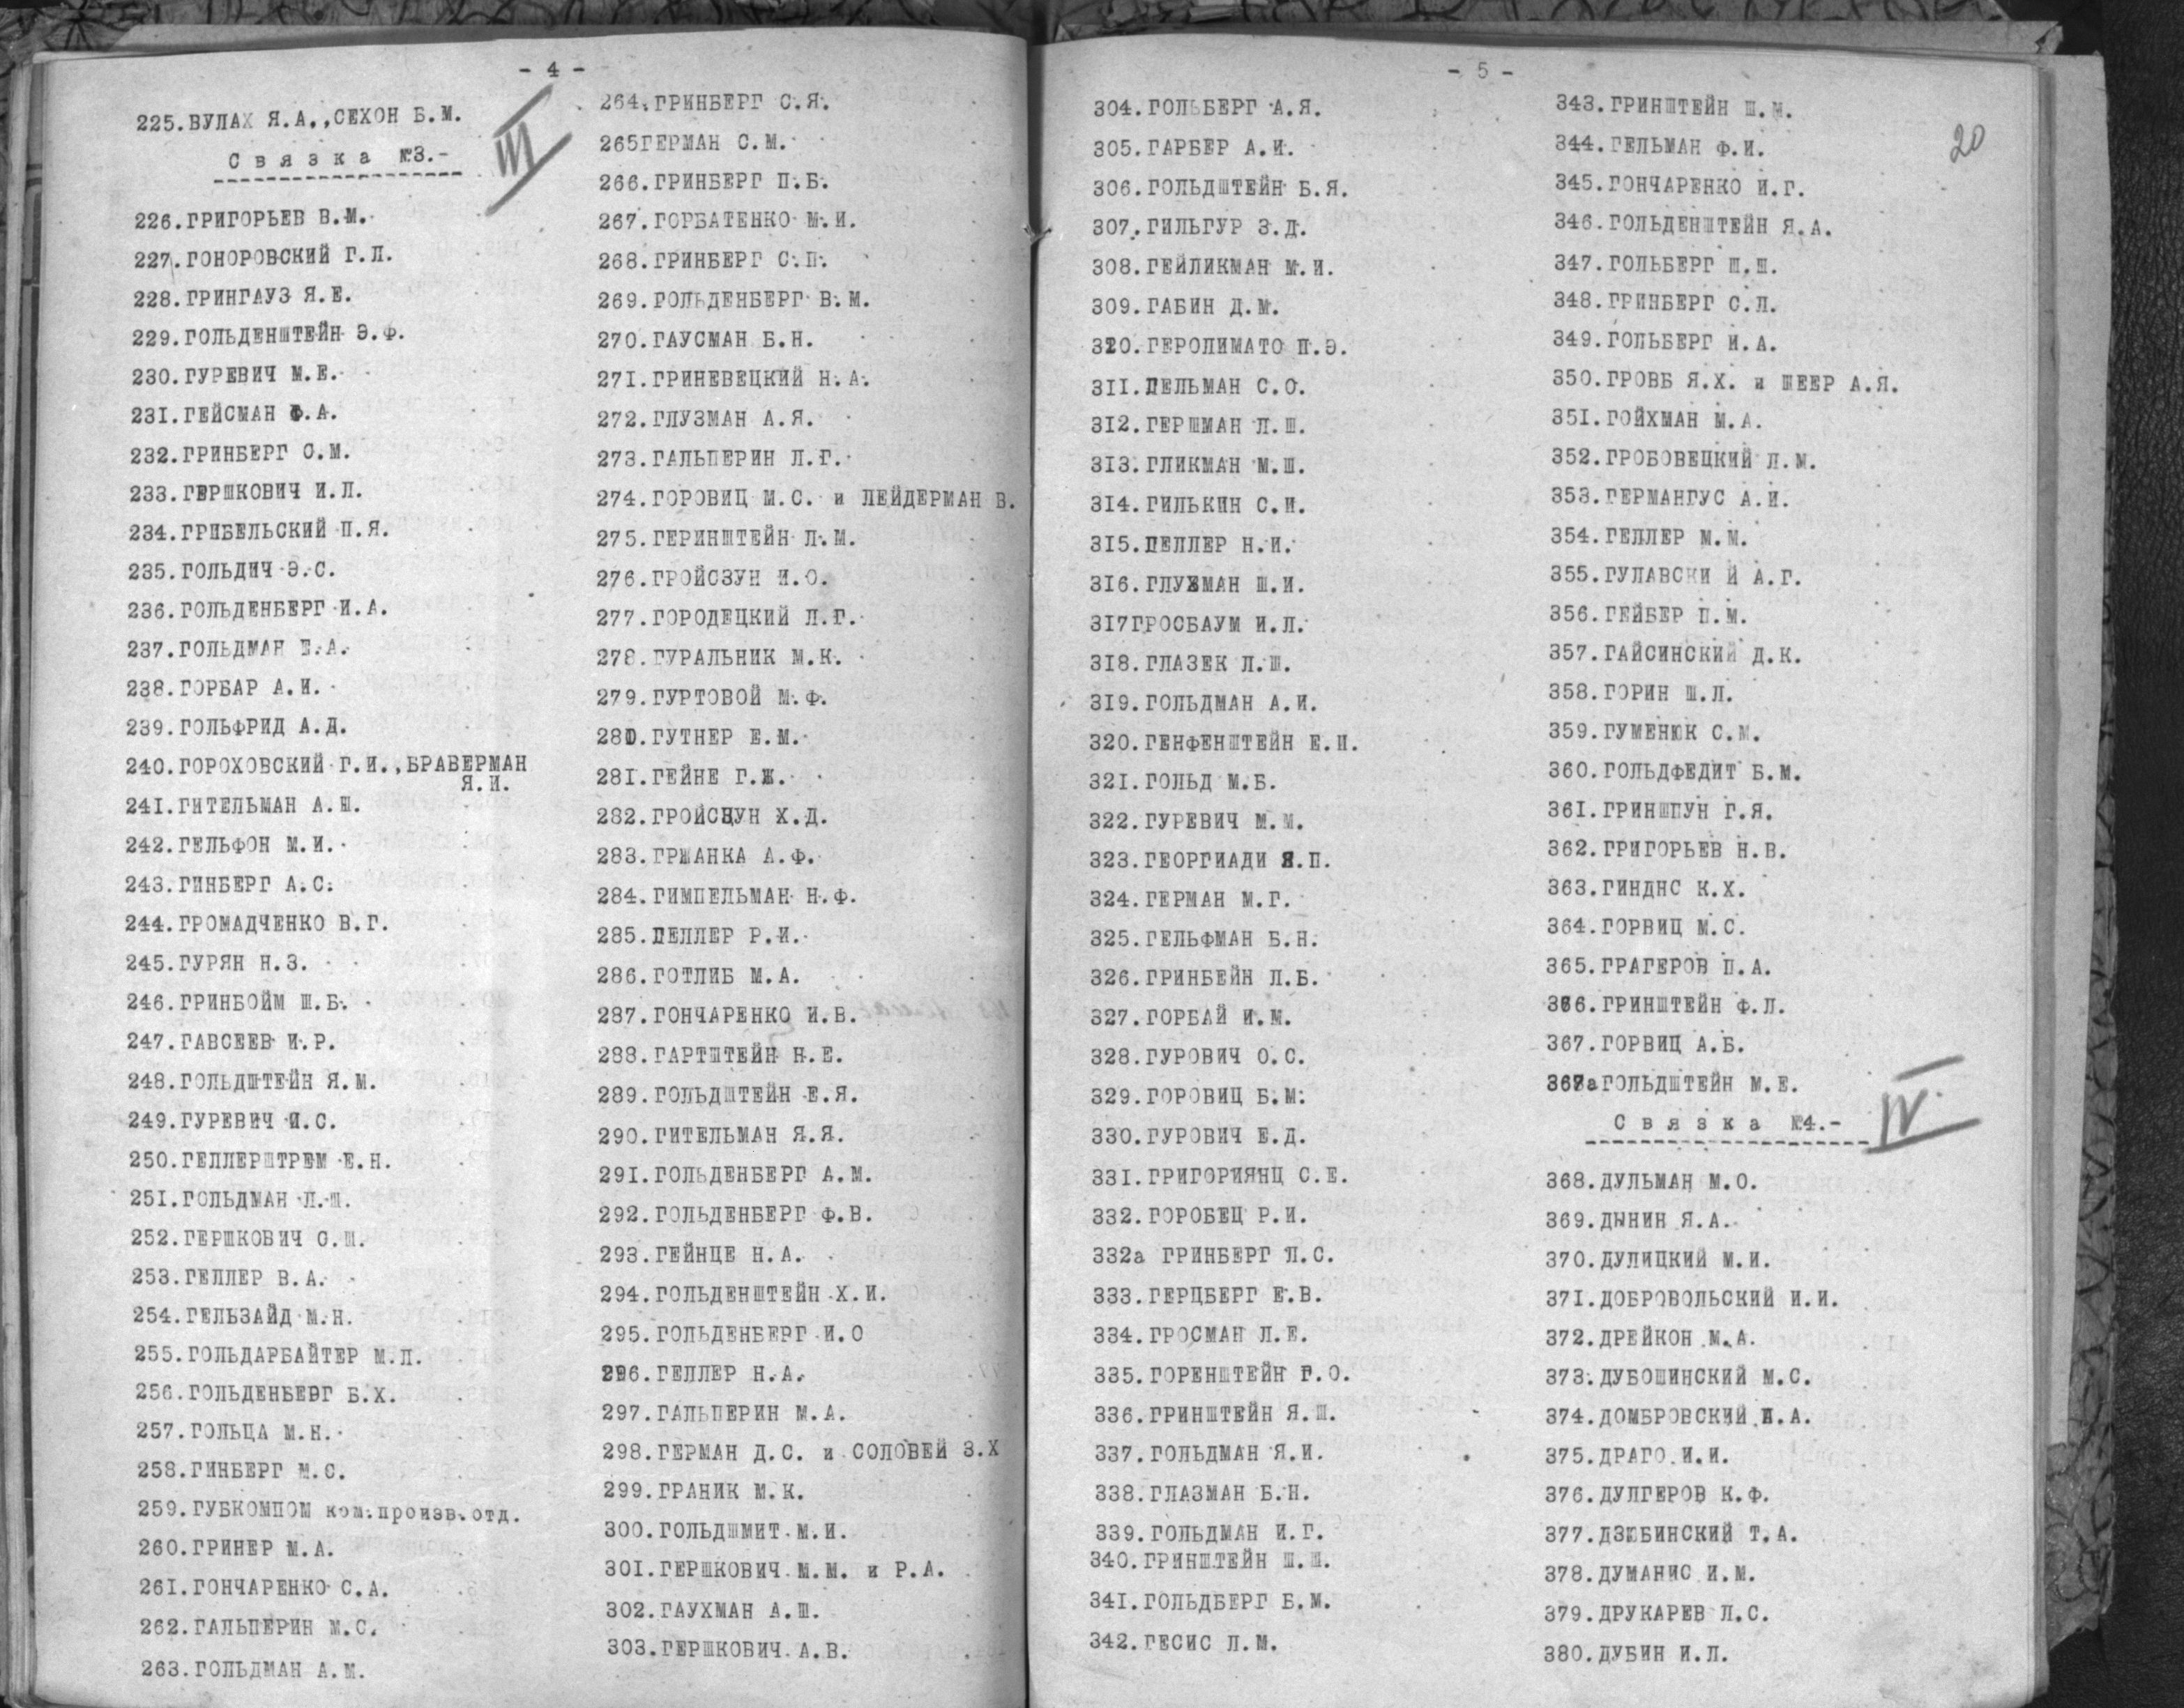 - 4 -
225.ВУЛАХ Я.А.,СЕХОН Б.М.
III
Связка №3.-
226.ГРИГОРЬЕВ В.М.
227.ГОНОРОВСКИЙ Г.Л.
228.ГРИНГАУЗ Я.Е.
229.ГОЛЬДЕНШТЕЙН Э.Ф.
230.ГУРЕВИЧ М.Е.
231.ГЕЙСМАН Ф.А.
232.ГРИНБЕРГ О.М.
233.ГЕРШКОВИЧ И.Л.
234.ГРИБЕЛЬСКИЙ П.Я.
235.ГОЛЬДИЧ Э.С.
236.ГОЛЬДЕНБЕРГ И.А.
237.ГОЛЬДМАН Е.А.
238.ГОРБАР А.И.
239.ГОЛЬФРИД А.Д.
240.ГОРОХОВСКИЙ Г.И.,БРАВЕРМАН
Я.И.
241.ГИТЕЛЬМАН А.Ш.
242.ГЕЛЬФОН М.И.
243.ГИНБЕРГ А.С.
244.ГРОМАДЧЕНКО В.Г.
245.ГУРЯН Н.З.
246.ГРИНБОЙМ Ш.Б.
247.ГАВСЕЕВ И.Р.
248.ГОЛЬДШТЕЙН Я.М.
249.ГУРЕВИЧ И.С.
250.ГЕЛЛЕРШТРЕМ Е.Н.
251.ГОЛЬДМАН Л.Ш.
252.ГЕРШКОВИЧ О.Ш.
253.ГЕЛЛЕР В.А.
254.ГЕЛЬЗАЙД М.Н.
255.ГОЛЬДАРБАЙТЕР М.Л.
256.ГОЛЬДЕНБЕРГ Б.Х.
257.ГОЛЬЦА М.Н.
258.ГИНБЕРГ М.С.
259.ГУБКОМПОМ ком.произв.отд.
260.ГРИНЕР М.А.
261.ГОНЧАРЕНКО С.А.
262.ГАЛЬПЕРИН М.С.
263.ГОЛЬДМАН А.М.
264.ГРИНБЕРГ С.Я.
265ГЕРМАН С.М.
266.ГРИНБЕРГ П.Б.
267.ГОРБАТЕНКО М.И.
268.ГРИНБЕРГ С.П.
269.ГОЛЬДЕНБЕРГ В.М.
270.ГАУСМАН Б.Н.
271.ГРИНЕВЕЦКИЙ Н.А.
272.ГЛУЗМАН А.Я.
273.ГАЛЬПЕРИН Л.Г.
274.ГОРОВИЦ М.С. и ЛЕЙДЕРМАН В.
275.ГЕРИНШТЕЙН Л.М.
276.ГРОЙСЗУН И.О.
277.ГОРОДЕЦКИЙ Л.Г.
278.ГУРАЛЬНИК М.К.
279.ГУРТОВОЙ М.Ф.
280.ГУТНЕР Е.М.
281.ГЕЙНЕ Г.Ж.
282.ГРОЙСЦУН Х.Д.
283.ГРЖАНКА А.Ф.
284.ГИМПЕЛЬМАН Н.Ф.
285.ГЕЛЛЕР Р.И.
286.ГОТЛИБ М.А.
287.ГОНЧАРЕНКО И.В.
288.ГАРТШТЕЙН Н.Е.
289.ГОЛЬДШТЕЙН Е.Я.
290.ГИТЕЛЬМАН Я.Я.
291.ГОЛЬДЕНБЕРГ А.М.
292.ГОЛЬДЕНБЕРГ Ф.В.
293.ГЕЙНЦЕ Н.А.
294.ГОЛЬДЕНШТЕЙН Х.И.
295.ГОЛЬДЕНБЕРГ И.О
296.ГЕЛЛЕР Н.А.
297.ГАЛЬПЕРИН М.А.
298.ГЕРМАН Д.С. и СОЛОВЕЙ З.Х
299.ГРАНИК М.К.
300.ГОЛЬДШМИТ М.И.
301.ГЕРШКОВИЧ М.М. и Р.А.
302.ГАУХМАН А.Ш.
303.ГЕРШКОВИЧ А.В.
- 5 -
20
304.ГОЛЬБЕРГ А.Я.
305.ГАРБЕР А.И.
306.ГОЛЬДШТЕЙН Б.Я.
307.ГИЛЬГУР З.Д.
308.ГЕЙЛИКМАН М.И.
309.ГАБИН Д.М.
310.ГЕРОЛИМАТО П.Э.
311.ГЕЛЬМАН С.О.
312.ГЕРШМАН Л.Ш.
313.ГЛИКМАН М.Ш.
314.ГИЛЬКИН С.И.
315.ГЕЛЛЕР Н.И.
316.ГЛУЗМАН Ш.И.
317ГРОСБАУМ И.Л.
318.ГЛАЗЕК Л.Ш.
319.ГОЛЬДМАН А.И.
320.ГЕНФЕНШТЕЙН Е.И.
321.ГОЛЬД М.Б.
322.ГУРЕВИЧ М.М.
323.ГЕОРГИАДИ Я.П.
324.ГЕРМАН М.Г.
325.ГЕЛЬФМАН Б.Н.
326.ГРИНБЕЙН Л.Б.
327.ГОРБАЙ И.М.
328.ГУРОВИЧ О.С.
329.ГОРОВИЦ Б.М.
330.ГУРОВИЧ Е.Д.
331.ГРИГОРИЯНЦ С.Е.
332.ГОРОБЕЦ Р.И.
332а ГРИНБЕРГ Л.С.
333.ГЕРЦБЕРГ Е.В.
334.ГРОСМАН Л.Е.
335.ГОРЕНШТЕЙН Г.О.
336.ГРИНШТЕЙН Я.Ш.
337.ГОЛЬДМАН Я.И.
338.ГЛАЗМАН Б.Н.
339.ГОЛЬДМАН И.Г.
340.ГРИНШТЕЙН Ш.Ш.
341.ГОЛЬДБЕРГ Б.М.
342.ГЕСИС Л.М.
343.ГРИНШТЕЙН Ш.М.
344.ГЕЛЬМАН Ф.И.
345.ГОНЧАРЕНКО И.Г.
346.ГОЛЬДЕНШТЕЙН Я.А.
347.ГОЛЬБЕРГ Ш.Ш.
348.ГРИНБЕРГ С.Л.
349.ГОЛЬБЕРГ И.А.
350.ГРОВБ Я.Х. и ШЕЕР А.Я.
351.ГОЙХМАН М.А.
352.ГРОБОВЕЦКИЙ Л.М.
353.ГЕРМАНГУС А.И.
354.ГЕЛЛЕР М.М.
355.ГУЛАВСКИ Й А.Г.
356.ГЕЙБЕР П.М.
357.ГАЙСИНСКИЙ Д.К.
358.ГОРИН Ш.Л.
359.ГУМЕНЮК С.М.
360.ГОЛЬДФЕДИТ Б.М.
361.ГРИНШПУН Г.Я.
362.ГРИГОРЬЕВ Н.В.
363.ГИНДНС К.Х.
364.ГОРВИЦ М.С.
365.ГРАГЕРОВ П.А.
366.ГРИНШТЕЙН Ф.Л.
367.ГОРВИЦ А.Б.
367аГОЛЬДШТЕЙН М.Е.
Связка №4.-
IV
368.ДУЛЬМАН М.О.
369.ДЫНИН Я.А.
370.ДУЛИЦКИЙ М.И.
371.ДОБРОВОЛЬСКИЙ И.И.
372.ДРЕЙКОН М.А.
373.ДУБОШИНСКИЙ М.С.
374.ДОМБРОВСКИЙ И.А.
375.ДРАГО И.И.
376.ДУЛГЕРОВ К.Ф.
377.ДЗЮБИНСКИЙ Т.А.
378.ДУМАНИС И.М.
379.ДРУКАРЕВ Л.С.
380.ДУБИН И.Л.